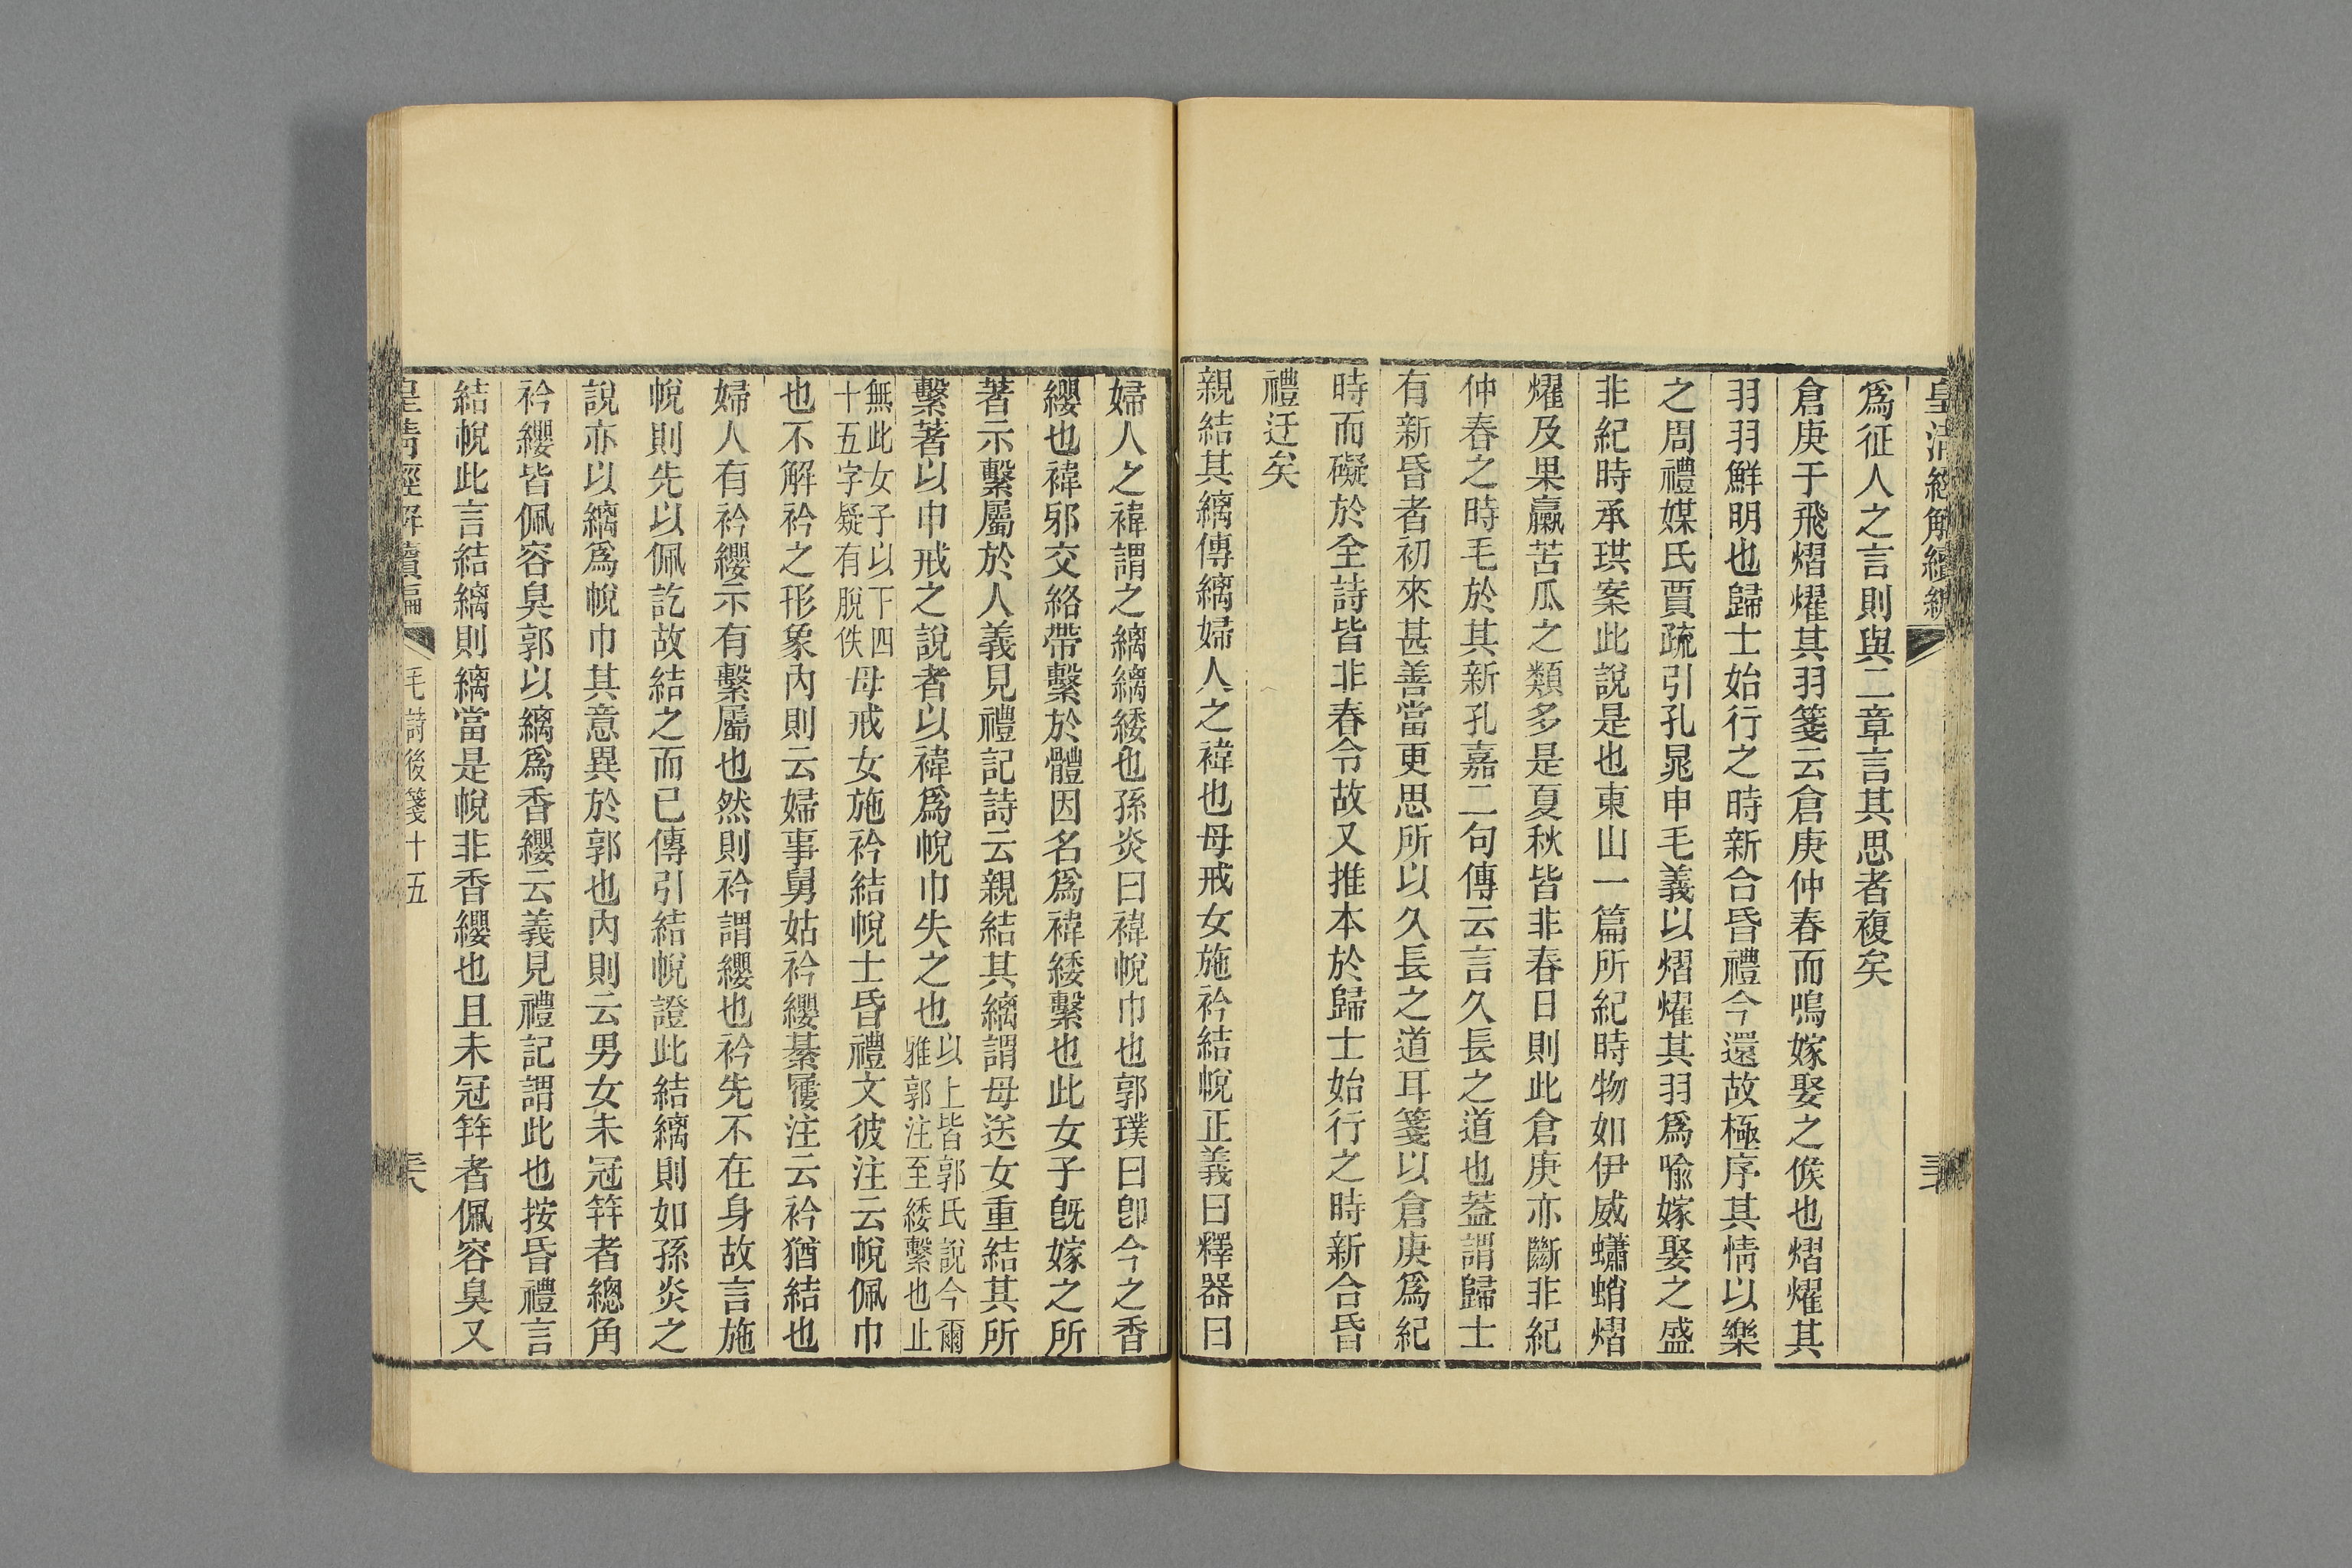 皇清經解續編
爲征人之言則與二章言其思者複矣
倉庚于飛熠燿其羽箋云倉庚仲春而鳴嫁娶之候也熠燿其
羽羽鮮明也歸士始行之時新合昏禮今還故極序其情以樂
之周禮媒氏賈疏引孔晁申毛義以熠燿其羽爲喻嫁娶之盛
非紀時承珙案此說是也東山一篇所紀時物如伊威蠨蛸熠
燿及果臝苦瓜之類多是夏秋皆非春日則此倉庚亦斷非紀
仲春之時毛於其新孔嘉二句傳云言久長之道也蓋謂歸士
有新昏者初來甚善當更思所以久長之道耳箋以倉庚爲紀
時而礙於全詩皆非春令故又推本於歸士始行之時新合昏
禮迂矣
親結其縭傳縭婦人之褘也母戒女施衿結帨正義曰釋器曰
婦人之褘謂之縭縭緌也孫炎曰褘帨巾也郭璞曰卽今之香
纓也褘邪交絡帶繫於體因名爲褘緌繫也此女子旣嫁之所
著示繫屬於人義見禮記詩云親結其縭謂母送女重結其所
繫著以申戒之說者以褘爲帨巾失之也以上皆郭氏說今爾雅郭注至緌繫也止
無此女子以下四十五字疑有脫佚母戒女施衿結帨士昏禮文彼注云帨佩巾
也不解衿之形象內則云婦事舅姑衿纓綦屨注云衿猶結也
婦人有衿纓示有繫屬也然則衿謂纓也衿先不在身故言施
帨則先以佩訖故結之而已傳引結帨證此結縭則如孫炎之
說亦以縭爲帨巾其意異於郭也內則云男女未冠笄者總角
衿纓皆佩容臭郭以縭爲香纓云義見禮記謂此也按昏禮言
結帨此言結縭則縭當是帨非香纓也且未冠笄者佩容臭又
皇清經解續編 毛詩後箋十五